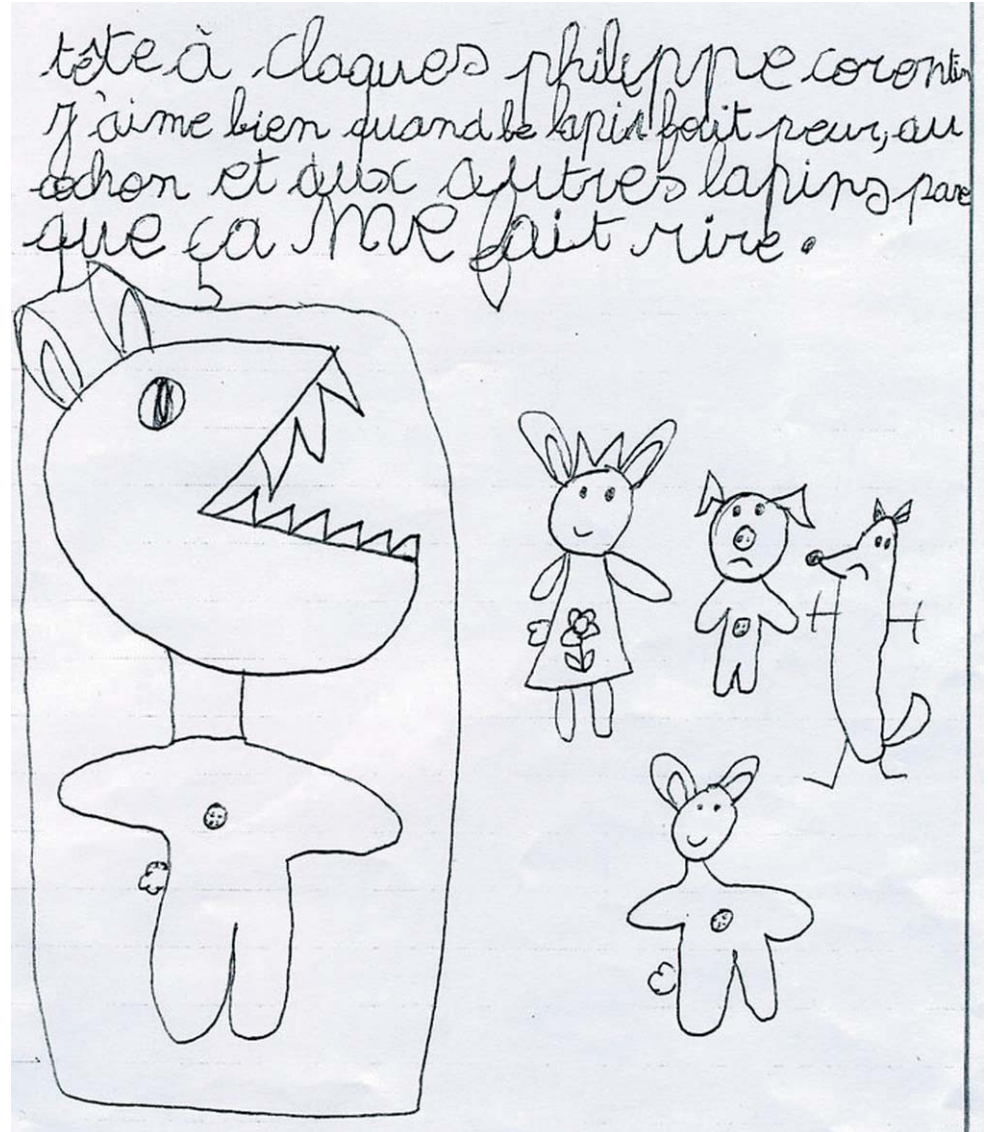 tête à claques philippe corentin
J'aime bien quand le lapin fait peur, au
cochon et aux autres lapins parce
que ça me fait rire.